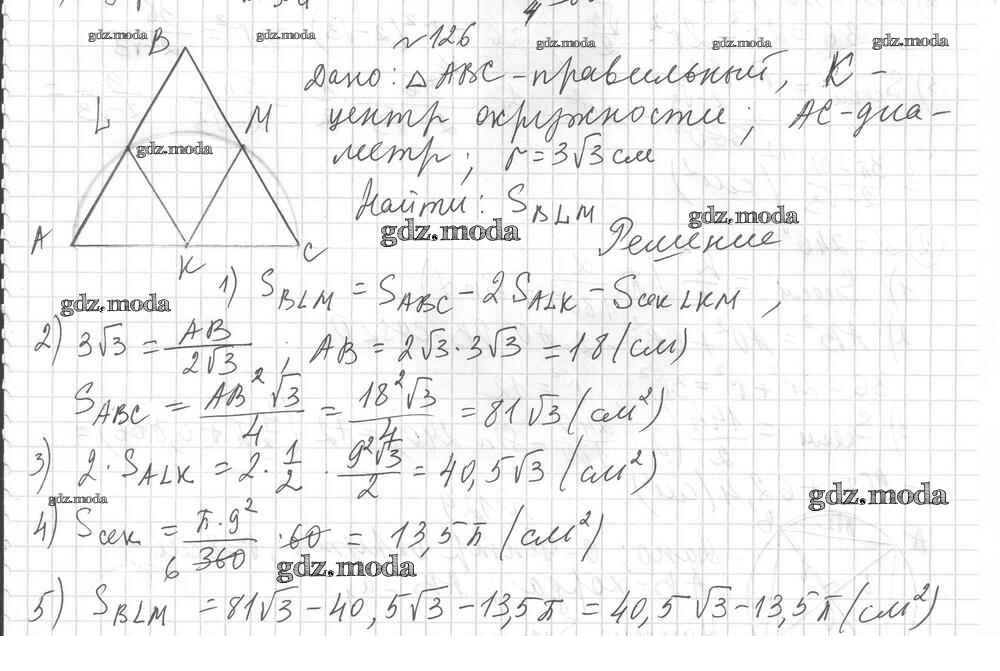 gdz.moda
gdz.moda
gdz.moda
gdz.moda
gdz.moda
B
N 126
Дано: △ ABC - правильный, K -
L
M
центр окружности; AC - диа-
gdz.moda
метр; r = 3√3 см
Найти: S_BLM
gdz.moda
gdz.moda
A
K
C
Решение
1) S_BLM = S_ABC - 2S_ALK - Sсек LKM ,
gdz.moda
2) 3√3 = AB/2√3 ; AB = 2√3 · 3√3 = 18 (см)
S_ABC = AB²√3/4 = 18²√3/4 = 81√3 (см²)
3) 2 · S_ALK = 2 · 1/2 · 9²√3/2 = 40,5√3 (см²)
gdz.moda
gdz.moda
4) Sсек = π·9²/6 360 · 60 = 13,5π (см²)
gdz.moda
5) S_BLM = 81√3 - 40,5√3 - 13,5π = 40,5√3 - 13,5π (см²)